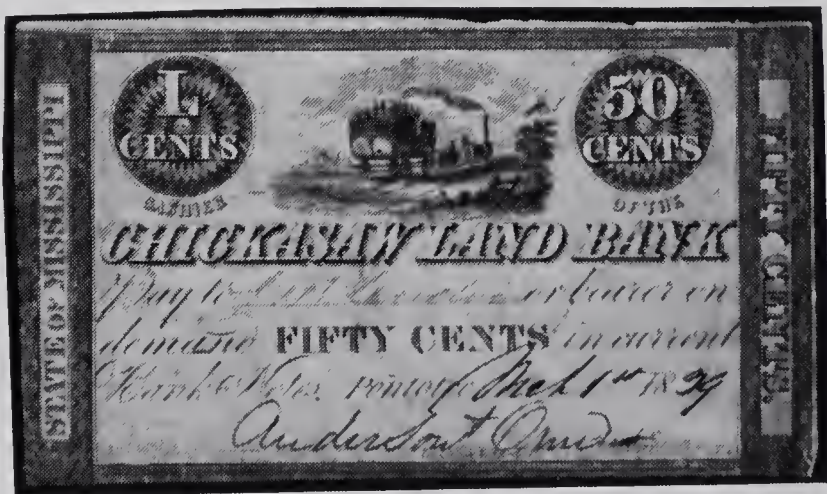 STATE OF MISSISSIPPI
L
CENTS
50
CENTS
CASHIER OF THE
CHICKASAW LAND BANK
Pay to or bearer on
demand FIFTY CENTS in current
Bank Notes. Mch 1st 1839
Anderson
FIFTY CENTS